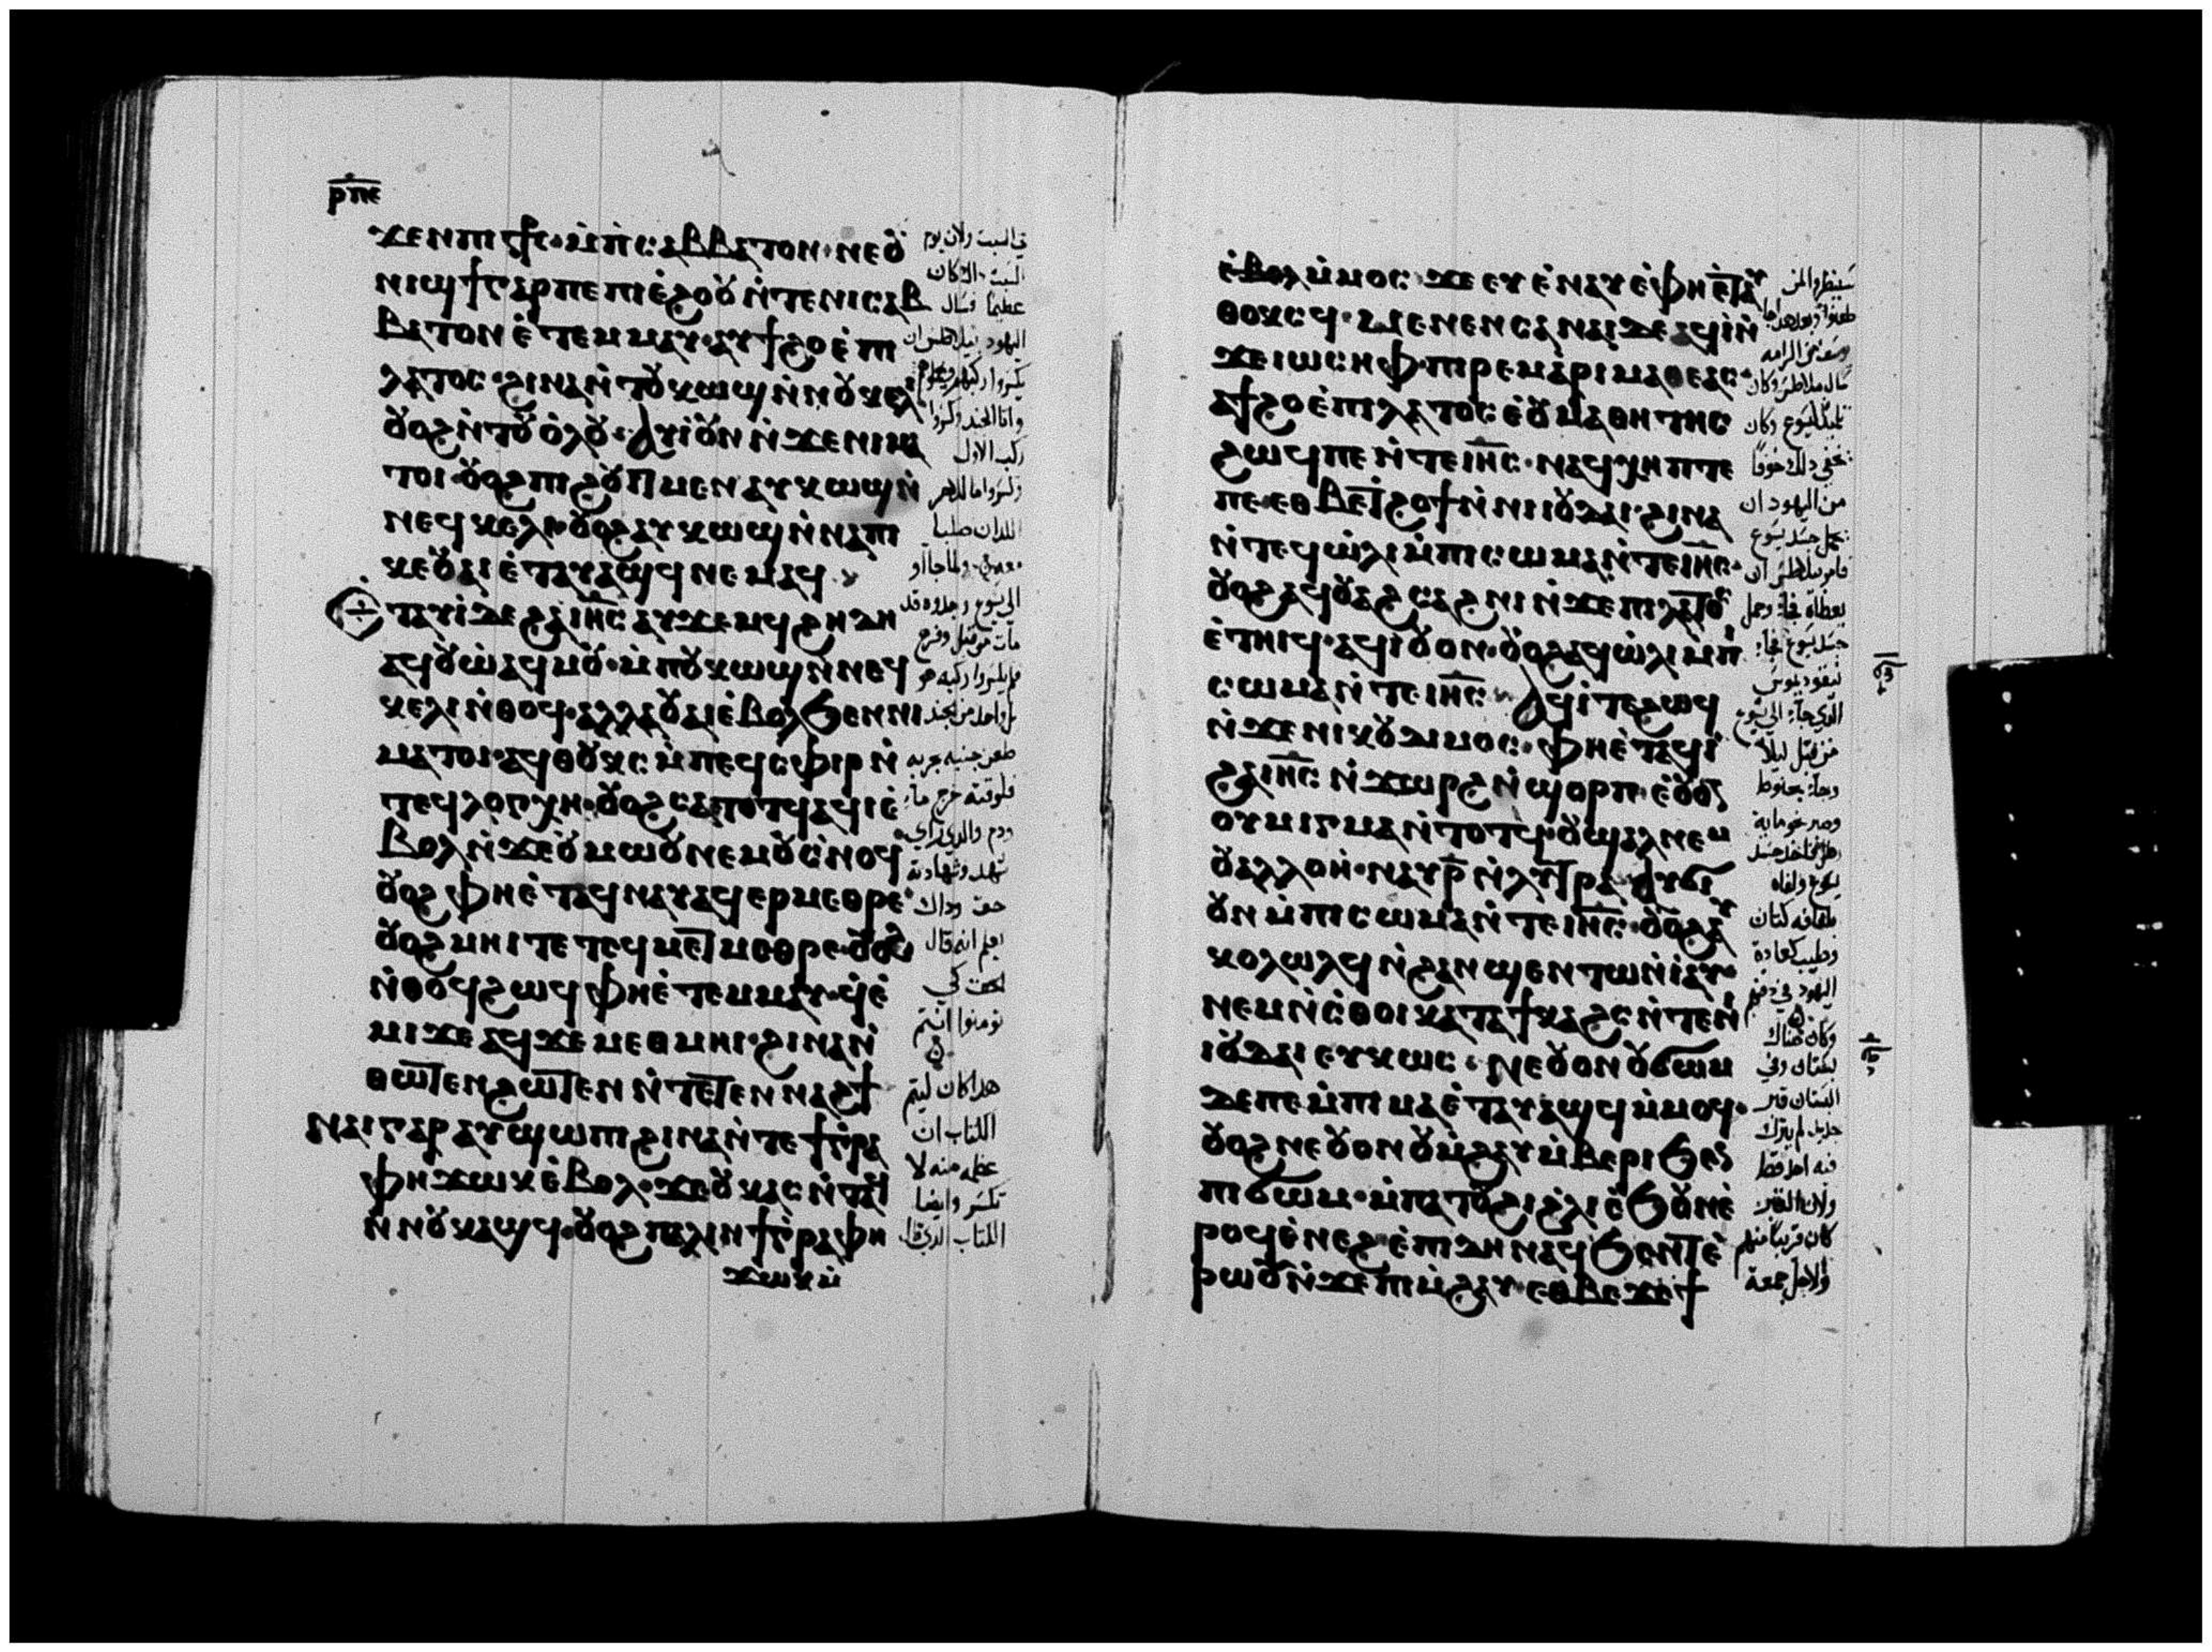 ⲣⲡⲉ
ϫⲉⲛⲡⲓ ⲥ̅ϯ̅ⲥ̅· ⲙ̀ⲡ̀ⲥⲁⲃⲃⲁⲧⲟⲛ· ⲛⲉⲟ̅ⲩ̅
ⲛⲓϣϯⲅⲁⲣⲡⲉ ⲡⲓⲉ̀ϩⲟⲟⲩⲛ̀ⲧⲉⲛⲓⲥⲁⲃ
ⲃⲁⲧⲟⲛ ⲉ̀ⲧⲉⲙⲙⲁⲩ· ⲁⲩϯϩⲟⲉ̀ⲡⲓ
ⲗⲁⲧⲟⲥ· ϩⲓⲛⲁⲛ̀ⲧⲟⲩⲕⲱϣ ⲛ̀ⲛⲟⲩⲕⲉⲗⲓ
ⲟⲩⲟϩⲛ̀ⲧⲟⲩⲟ̀ⲗⲟⲩ· ⲁⲩⲓ̀ⲟⲩⲛ ⲛ̀ϫⲉⲛⲓⲙⲁ
ⲧⲟⲓ· ⲟⲩⲟϩ ⲡⲓϩⲟⲩⲓⲧ ⲙⲉⲛ ⲁⲩⲕⲱϣⲛ̀
ⲛⲉϥⲕⲉⲗⲓ· ⲟⲩⲟϩⲁⲩⲕⲱϣⲛ̀ⲛⲁⲡⲓ
ⲕⲉⲟⲩⲁⲓ ⲉ̀ⲧⲁⲩⲁϣϥ ⲛⲉⲙⲁϥ·
ⲧⲁⲩⲓ̀ ⲇⲉ ϩⲁⲓⲏ̅ⲥ̅ ⲁⲩϫⲉⲙϥ ϩⲏⲇⲏ
ⲁϥⲟⲩⲱ̀ ⲁϥⲙⲟⲩ· ⲙ̀ⲡⲟⲩⲕⲱϣⲛ̀ⲛⲉϥ
ⲕⲉⲗⲓ ⲛ̀ⲑⲟϥ· ⲁⲗⲗⲁ ⲟⲩⲁⲓⲉ̀ⲃⲟⲗϧⲉⲛⲛⲓ
ⲙⲁⲧⲟⲓ· ⲁϥⲑⲟⲩⲕⲥ ⲙ̀ⲡⲉϥⲥⲫⲓⲣ ⲛ̀
ⲧⲉϥⲗⲟⲅⲭⲏ· ⲟⲩⲟϩ ⲥⲁⲧⲟⲧϥ ⲁϥⲓ̀ ⲉ̀
ⲃⲟⲗ ⲛ̀ϫⲉⲟⲩⲙⲱⲟⲩ ⲛⲉⲙⲟⲩⲥ̀ⲛⲟϥ
ⲟⲩⲟϩ ⲫⲏⲉ̀ⲧⲁϥⲛⲁⲩ ⲁϥⲉⲣⲙⲉⲑⲣⲉ·
ⲟⲩⲟϩ ⲙⲏⲓ ⲧⲉ ⲧⲉϥⲙⲉⲧⲙⲉⲑⲣⲉ· ⲟⲩⲟϩ
ⲛ̀ⲑⲟϥϩⲱϥ ⲫⲏⲉ̀ⲧⲉⲙⲙⲁⲩ· ϥ̀ⲉ̀
ⲙⲓ ϫⲉ ⲁϥϫⲉ ⲙⲉⲑⲙⲏⲓ· ϩⲓⲛⲁ ⲛ̀
ⲑⲱⲧⲉⲛ ϩⲱⲧⲉⲛ ⲛ̀ⲧⲉⲧⲉⲛⲛⲁϩϯ
ⲛⲁⲓ ⲅⲁⲣ ⲁⲩϣⲱⲡⲓ ϩⲓⲛⲁⲛ̀ⲧⲉ ϯⲅ̀ⲣⲁ
ⲫⲏ ϫⲱⲕ ⲉ̀ⲃⲟⲗ· ϫⲉⲟⲩⲕⲁⲥ ⲛ̀ⲧⲁϥ
ⲛ̀ⲛⲟⲩⲕⲁϣϥ· ⲟⲩⲟϩ ⲡⲁⲗⲓⲛ ϯⲅ̀ⲣⲁⲫⲏ
ϫⲱⲕ ⲙ̀
في السبت ولان يوم
السبت ذلك كان
عظيما فسال
اليهود بيلاطس ان
يكسروا ركبهم
واتا الجند فكسروا
ركب الاول
الى يسوع وجدوه قد
مات من قبل وخرج
طعن جنبه بحربه
حق وذاك
يعلم انه قال
الحق لكي
تومنوا انتم
هذا كان ليتم
الكتاب ان
عظم منه لا
تكسر وايضا
الكتاب الذي قال
ⲉ̀ⲃⲟⲗⲙ̀ⲙⲟⲥ· ϫⲉ ⲉⲩⲉ̀ⲛⲁⲩ ⲉ̀ⲫⲏⲉ̀ⲧⲁⲩ
ⲑⲟⲕⲥϥ· ⲙⲉⲛⲉⲛⲥⲁⲛⲁⲓ ⲇⲉ ⲁϥⲓ̀ ⲛ̀
ϫⲉⲓⲱⲥⲏⲫ· ⲡⲓⲣⲉⲙⲁⲣⲓⲙⲁⲑⲉⲁⲥ·
ⲁϥϯϩⲟ ⲉ̀ⲡⲓⲗⲁⲧⲟⲥ ⲉ̀ⲟⲩⲙⲁⲑⲏⲧⲏⲥ
ϩⲱϥⲡⲉ ⲛ̀ⲧⲉⲓⲏ̅ⲥ̅· ⲛⲁϥⲭⲏⲡ ⲧⲉ
ⲡⲉ ⲉⲑⲃⲉⲧϩⲟϯ ⲛ̀ⲛⲓⲓⲟⲩⲇⲁⲓ· ϩⲓⲛⲁ
ⲛ̀ⲧⲉϥⲱ̀ⲗⲓ ⲙ̀ⲡⲓⲥⲱⲙⲁ ⲛ̀ⲧⲉⲓⲏ̅ⲥ̅·
ⲟⲩⲟϩ ⲁϥⲟⲩⲁϩⲥⲁϩⲛⲓ ⲛ̀ϫⲉⲡⲓⲗⲁⲧⲟⲥ
ⲉ̀ⲧⲏⲓϥ· ⲁϥⲓ̀ ⲟⲩⲟⲛ· ⲟⲩⲟϩ ⲁϥⲱ̀ⲗⲓ ⲙ̀ⲡⲓ
ⲥⲱⲙⲁ ⲛ̀ⲧⲉⲓⲏ̅ⲥ̅ ⲁϥⲓ̀ ⲧⲉ ϩⲱϥ
ⲛ̀ϫⲉ ⲛⲓⲕⲟⲩⲇⲓⲙⲟⲥ· ⲫⲏⲉ̀ⲧⲁϥⲓ̀
ϩⲁⲓⲏ̅ⲥ̅ ⲛ̀ϫⲱⲣϩ ⲛ̀ϣⲟⲣⲡ· ⲉ̀ⲟⲩⲟⲛ
ⲟⲩⲙⲓⲅⲙⲁ ⲛ̀ⲧⲟⲧϥ· ⲟⲩϣⲁⲗ ⲛⲉⲙ
ⲟⲩⲁⲗⲗⲟⲏ· ⲛⲁⲩⲣ̅ ⲛ̀ⲗⲩⲧⲣⲁ· ⲁⲩϭⲓ
ⲟⲩⲛ ⲙ̀ⲡⲓⲥⲱⲙⲁ ⲛ̀ⲧⲉⲓⲏ̅ⲥ̅· ⲟⲩⲟϩ ⲁⲩ
ⲕⲟⲩⲗⲱⲗϥ ⲛ̀ϩⲁⲛϣⲉⲛⲧⲱ ⲛ̀ⲓⲁⲩ·
ⲛⲉⲙ ⲛ̀ⲥ̀ⲑⲟⲓ ⲕⲁⲧⲁ ϯⲕⲁϩⲥ ⲛ̀ⲧⲉ ⲛⲓ
ⲓⲟⲩⲇⲁⲓ ⲉⲩⲕⲱⲥ· ⲛⲉⲟⲩⲟⲛ ⲟⲩϭⲱⲙ
ⲇⲉ ⲡⲉ ⲙ̀ⲡⲓⲙⲁ ⲉ̀ⲧⲁⲩⲁϣϥ ⲙ̀ⲙⲟϥ·
ⲟⲩⲟϩ ⲛⲉⲟⲩⲟⲛ ⲟⲩⲙ̀ϩⲁⲩ ⲙ̀ⲃⲉⲣⲓ ϧⲉⲛ
ⲡⲓϭⲱⲙ· ⲙ̀ⲡⲁⲧⲟⲩϩⲓ ϩ̀ⲗⲓ ⲉ̀ϧⲟⲩⲛ ⲉ̀
ⲣⲟϥ ⲉ̀ⲛⲉϩ· ⲉ̀ⲡⲓⲇⲏ ⲛⲁϥϧⲉⲛⲧ ⲉ̀
ⲣⲱⲟⲩ ⲛ̀ϫⲉ ⲡⲓⲙ̀ϩⲁⲩ· ⲉⲑⲃⲉ ϫⲉ ϯ
سينظروا لمن
من الرامه
تلميذ ليسوع وكان
يخفي ذلك خوفا
من اليهود ان
يحمل جسد يسوع
فامر بيلاطس ان
يعطاه فجا وحمل
جسد يسوع فجا
نيقوديموس
الذي جا الى يسوع
من قبل ليلا
يسوع ولفاه
بلفايف كتان
وطيب كعادة
اليهود في دفنهم
وكان هناك
بستان وفي
البستان قبر
جديد لم يترك
فيه احد قط
ولان القبر
كان قريبا منهم
ولاجل جمعة